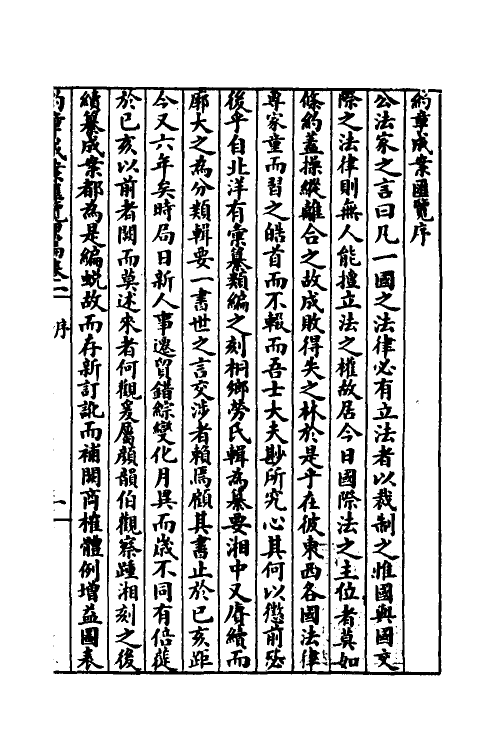 約章成案匯覽序
公法家之言曰凡一國之法律必有立法者以裁制之惟國與國交
際之法律則無人能擅立法之權故居今日國際法之主位者莫如
條約蓋操縱離合之故成敗得失之林於是乎在彼東西各國法律
專家童而習之皓首而不輟而吾士大夫尟所究心其何以懲前毖
後乎自北洋有彙纂類編之刻桐鄉勞氏輯為纂要湘中又賡續而
廓大之為分類輯要一書世之言交涉者賴焉顧其書止於已亥距
今又六年矣時局日新人事遷貿錯綜變化月異而歲不同有倍蓰
於已亥以前者闕而莫述來者何觀爰屬顏韻伯觀察踵湘刻之後
續纂成案都為是編蛻故而存新訂訛而補闕商榷體例增益圖表
約章成案匯覽
序
一